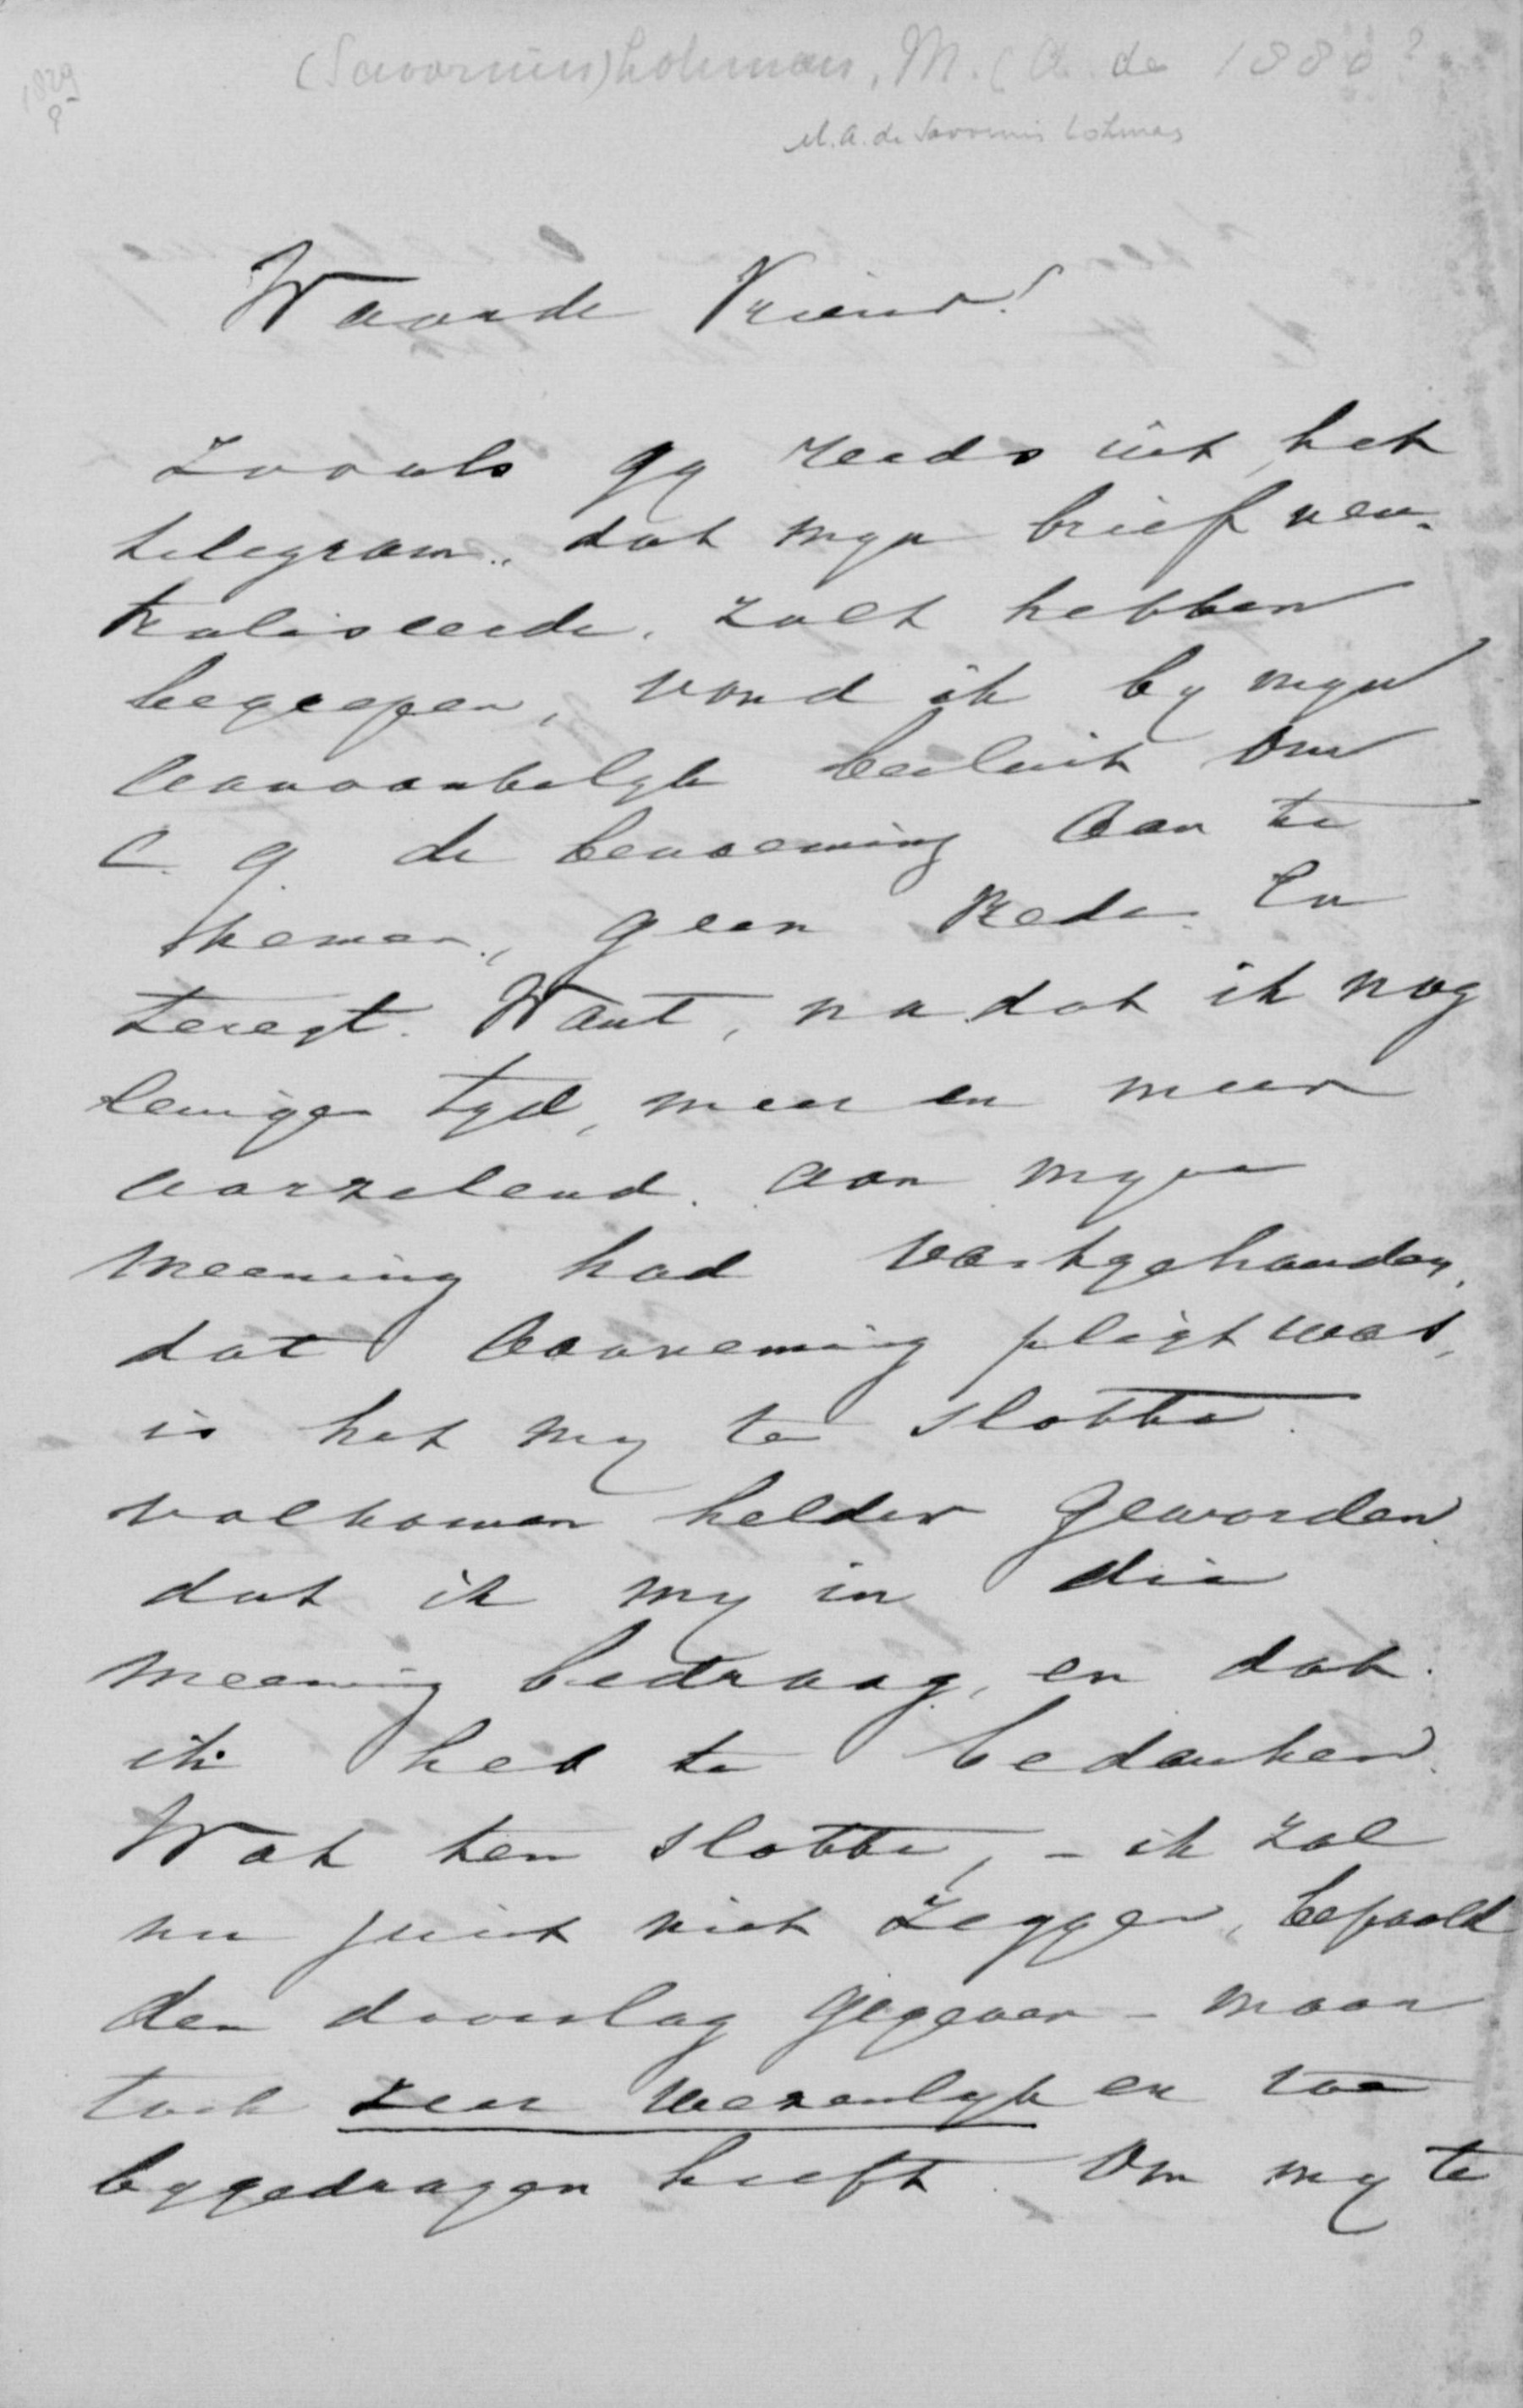 (Savornin) Lohman, M. (A. de 1880?
1879
?
M.A. de Savornin Lohman
Waarde Vriend!
Zooals gy reeds uit het
telegram, dat myn brief neu-
traliseerde, zult hebben
begrepen, vond ik by myn
aanvankelyk besluit om
c. q. de benoeming aan te
nemen, geen vrede. En
teregt. Want, na dat ik nog
eenigen tyd, meer en meer
aarzelend, aan myne
meening had vastgehouden,
dat aanneming pligt was,
is het my ten slotte
volkomen helder geworden
dat ik my in die
meening bedroog, en dat
ik had te bedanken.
Wat ten slotte, - ik zal
nu juist niet zeggen, bepaald
den doorslag gegeven - maar
toch zeer wezenlyk er toe
bygedragen heeft om my te